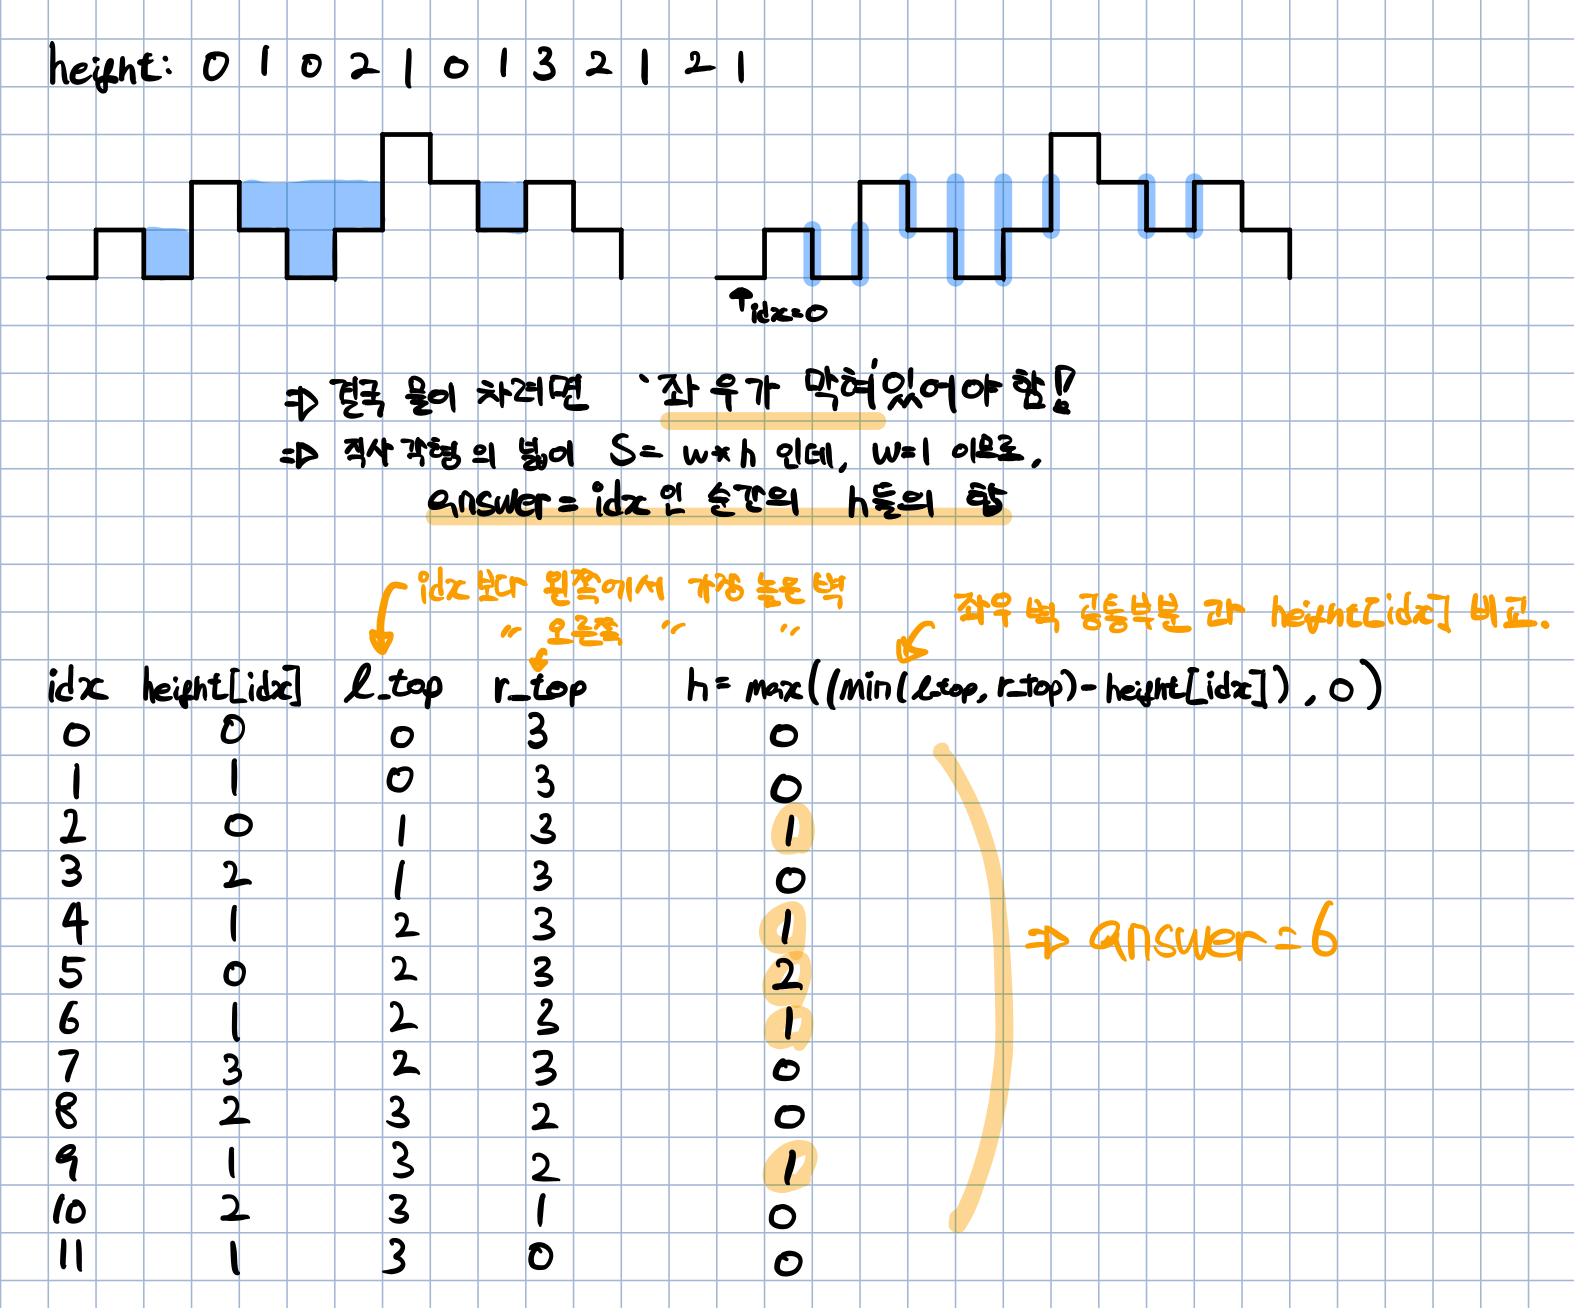 height: 0 1 0 2 1 0 1 3 2 1 2 1
idx=0
⇒ 결국 물이 차려면 '좌우가 막혀'있어야 함!
⇒ 직사각형의 넓이 S= w*h 인데, w=1 이므로,
answer = idx인 순간의 h들의 합
idx보다 왼쪽에서 가장 높은 벽
〃 오른쪽 〃 〃
좌우 벽 공통부분과 height[idx] 비교.
idx height[idx] l_top r_top h= max((min(l_top, r_top)-height[idx]), 0)
0 0 0 3 0
1 1 0 3 0
2 0 1 3 1
3 2 1 3 0
4 1 2 3 1
5 0 2 3 2
6 1 2 3 1
7 3 2 3 0
8 2 3 2 0
9 1 3 2 1
10 2 3 1 0
11 1 3 0 0
⇒ answer = 6